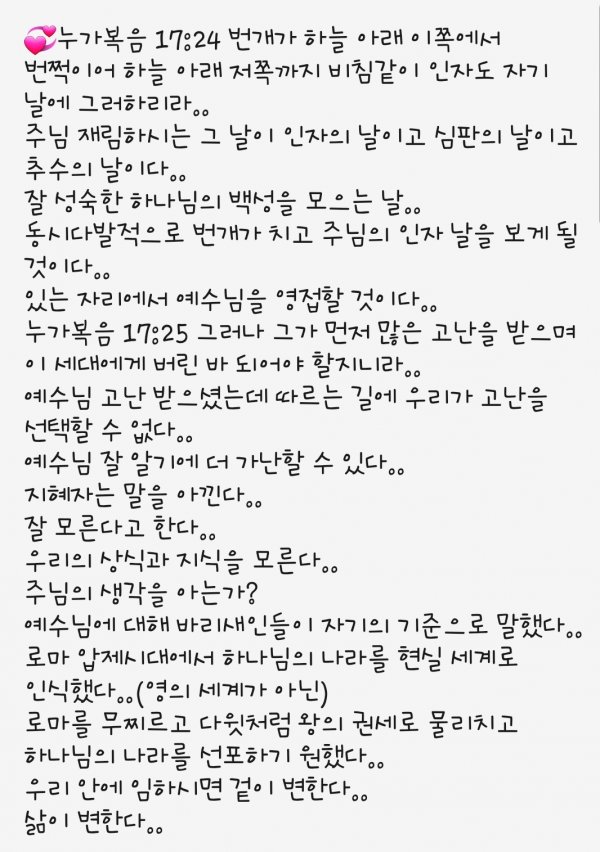 💞누가복음 17:24 번개가 하늘 아래 이쪽에서
번쩍이어 하늘 아래 저쪽까지 비침같이 인자도 자기
날에 그러하리라..
주님 재림하시는 그 날이 인자의 날이고 심판의 날이고
추수의 날이다..
잘 성숙한 하나님의 백성을 모으는 날..
동시다발적으로 번개가 치고 주님의 인자 날을 보게 될
것이다..
있는 자리에서 예수님을 영접할 것이다..
누가복음 17:25 그러나 그가 먼저 많은 고난을 받으며
이 세대에게 버린 바 되어야 할지니라..
예수님 고난 받으셨는데 따르는 길에 우리가 고난을
선택할 수 없다..
예수님 잘 알기에 더 가난할 수 있다..
지혜자는 말을 아낀다..
잘 모른다고 한다..
우리의 상식과 지식을 모른다..
주님의 생각을 아는가?
예수님에 대해 바리새인들이 자기의 기준으로 말했다..
로마 압제시대에서 하나님의 나라를 현실 세계로
인식했다..(영의 세계가 아닌)
로마를 무찌르고 다윗처럼 왕의 권세로 물리치고
하나님의 나라를 선포하기 원했다..
우리 안에 임하시면 겉이 변한다..
삶이 변한다..